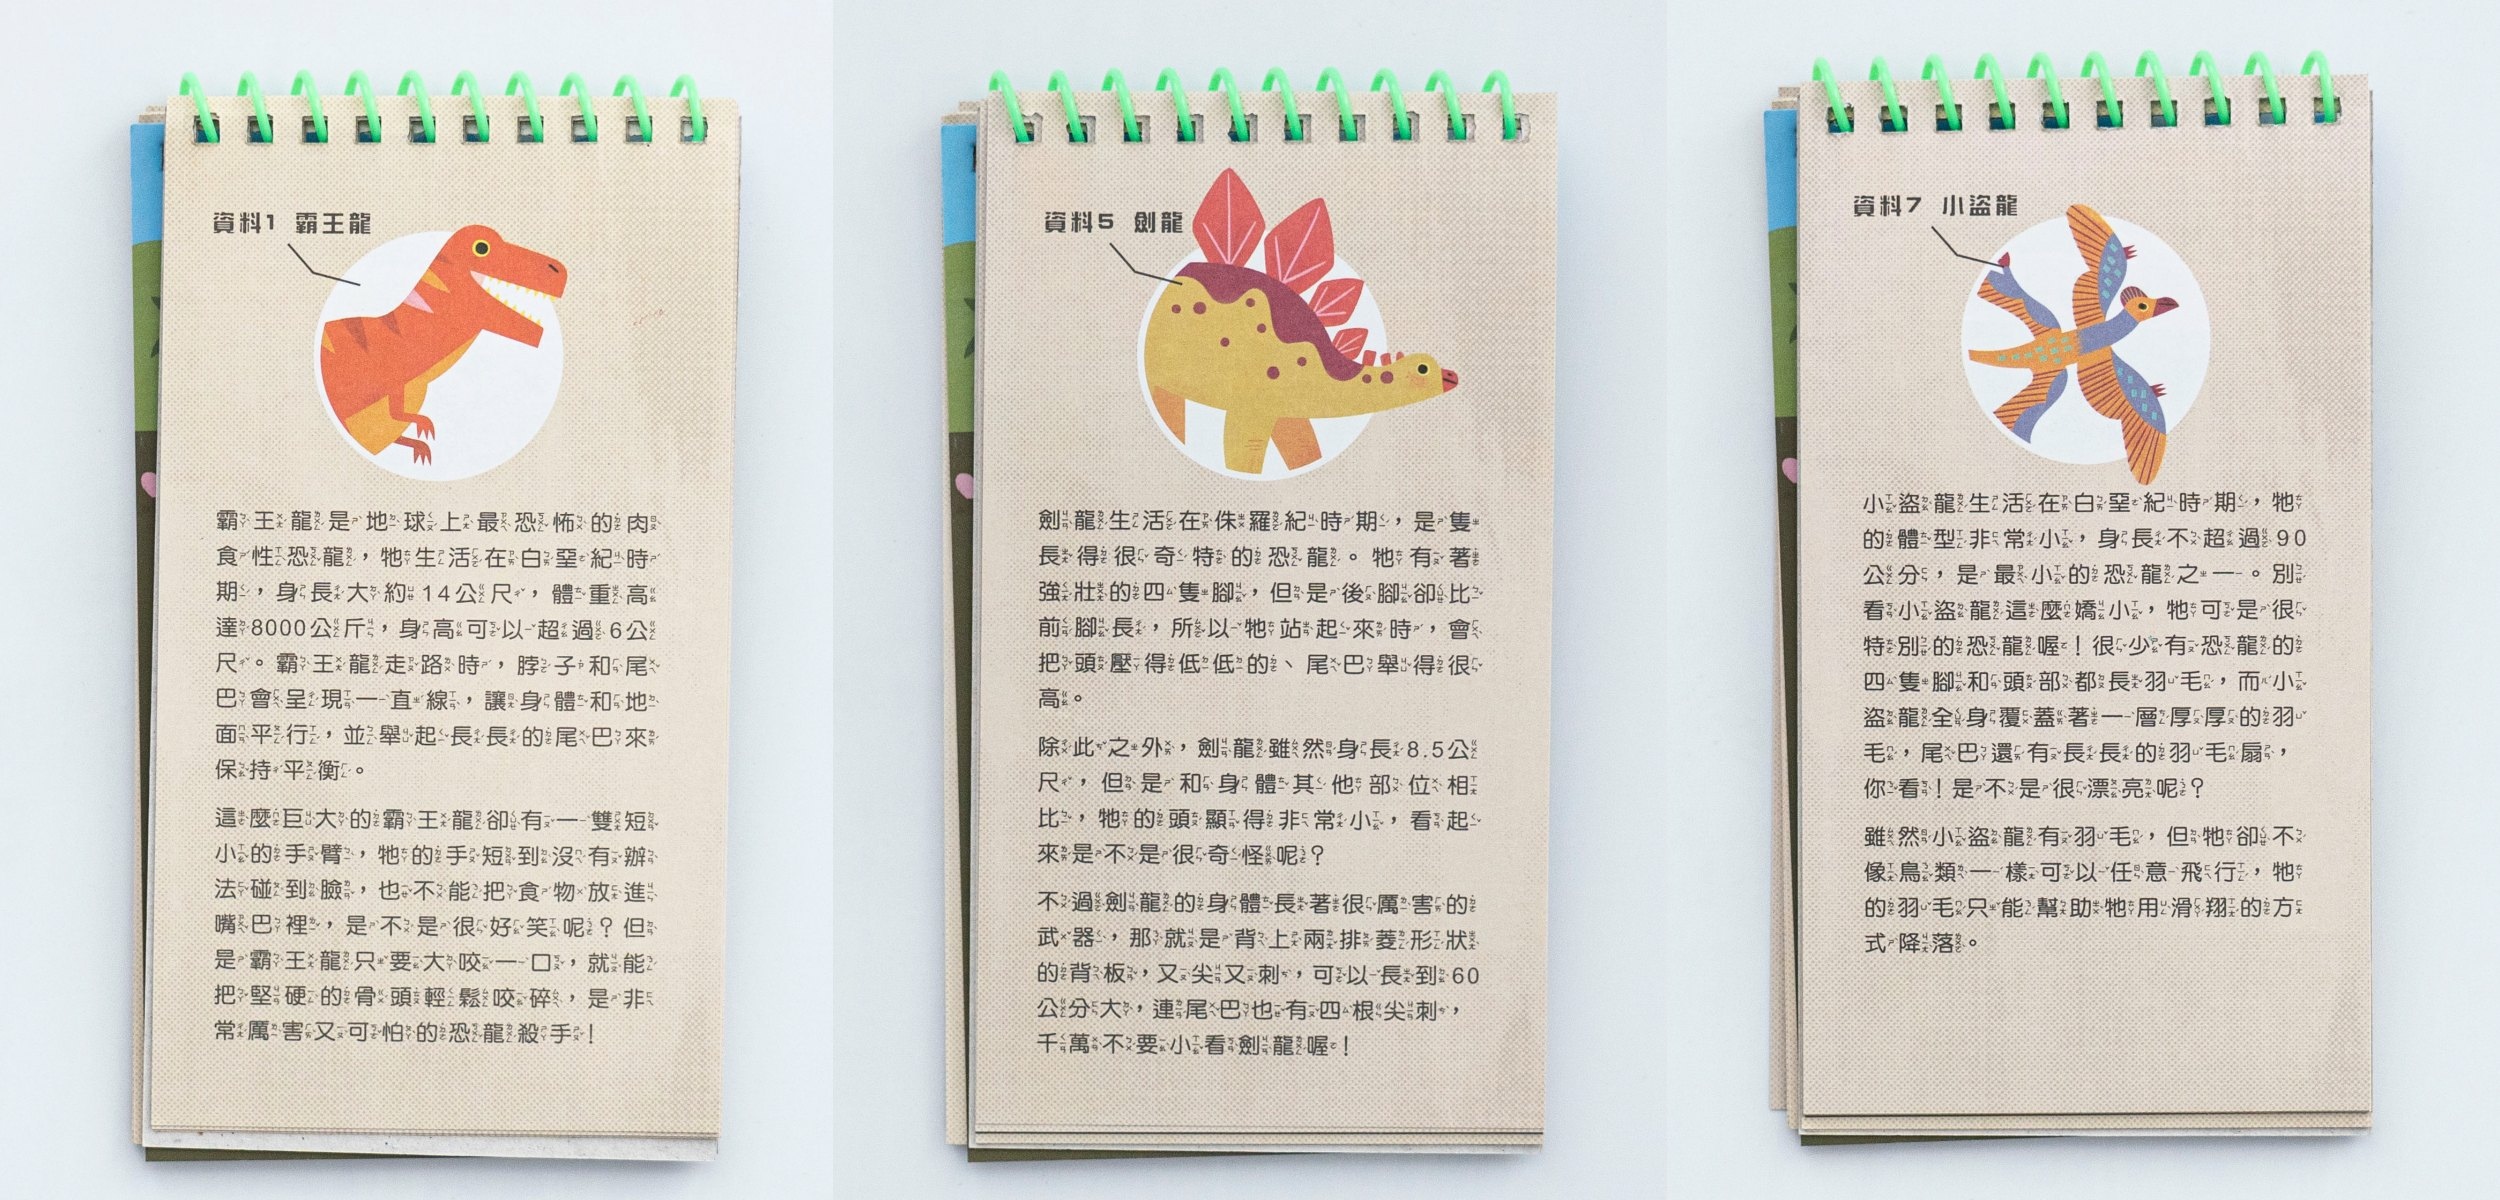 資料1 霸王龍
霸王龍是地球上最恐怖的肉
食性恐龍，牠生活在白堊紀時
期，身長大約14公尺，體重高
達8000公斤，身高可以超過6公
尺。霸王龍走路時，脖子和尾
巴會呈現一直線，讓身體和地
面平行，並舉起長長的尾巴來
保持平衡。
這麼巨大的霸王龍卻有一雙短
小的手臂，牠的手短到沒有辦
法碰到臉，也不能把食物放進
嘴巴裡，是不是很好笑呢？但
是霸王龍只要大咬一口，就能
把堅硬的骨頭輕鬆咬碎，是非
常厲害又可怕的恐龍殺手！
資料5 劍龍
劍龍生活在侏羅紀時期，是隻
長得很奇特的恐龍。牠有著
強壯的四隻腳，但是後腳卻比
前腳長，所以牠站起來時，會
把頭壓得低低的、尾巴舉得很
高。
除此之外，劍龍雖然身長8.5公
尺，但是和身體其他部位相
比，牠的頭顯得非常小，看起
來是不是很奇怪呢？
不過劍龍的身體長著很厲害的
武器，那就是背上兩排菱形狀
的背板，又尖又刺，可以長到60
公分大，連尾巴也有四根尖刺，
千萬不要小看劍龍喔！
資料7 小盜龍
小盜龍生活在白堊紀時期，牠
的體型非常小，身長不超過90
公分，是最小的恐龍之一。別
看小盜龍這麼嬌小，牠可是很
特別的恐龍喔！很少有恐龍的
四隻腳和頭部都長羽毛，而小
盜龍全身覆蓋著一層厚厚的羽
毛，尾巴還有長長的羽毛扇，
你看！是不是很漂亮呢？
雖然小盜龍有羽毛，但牠卻不
像鳥類一樣可以任意飛行，牠
的羽毛只能幫助牠用滑翔的方
式降落。